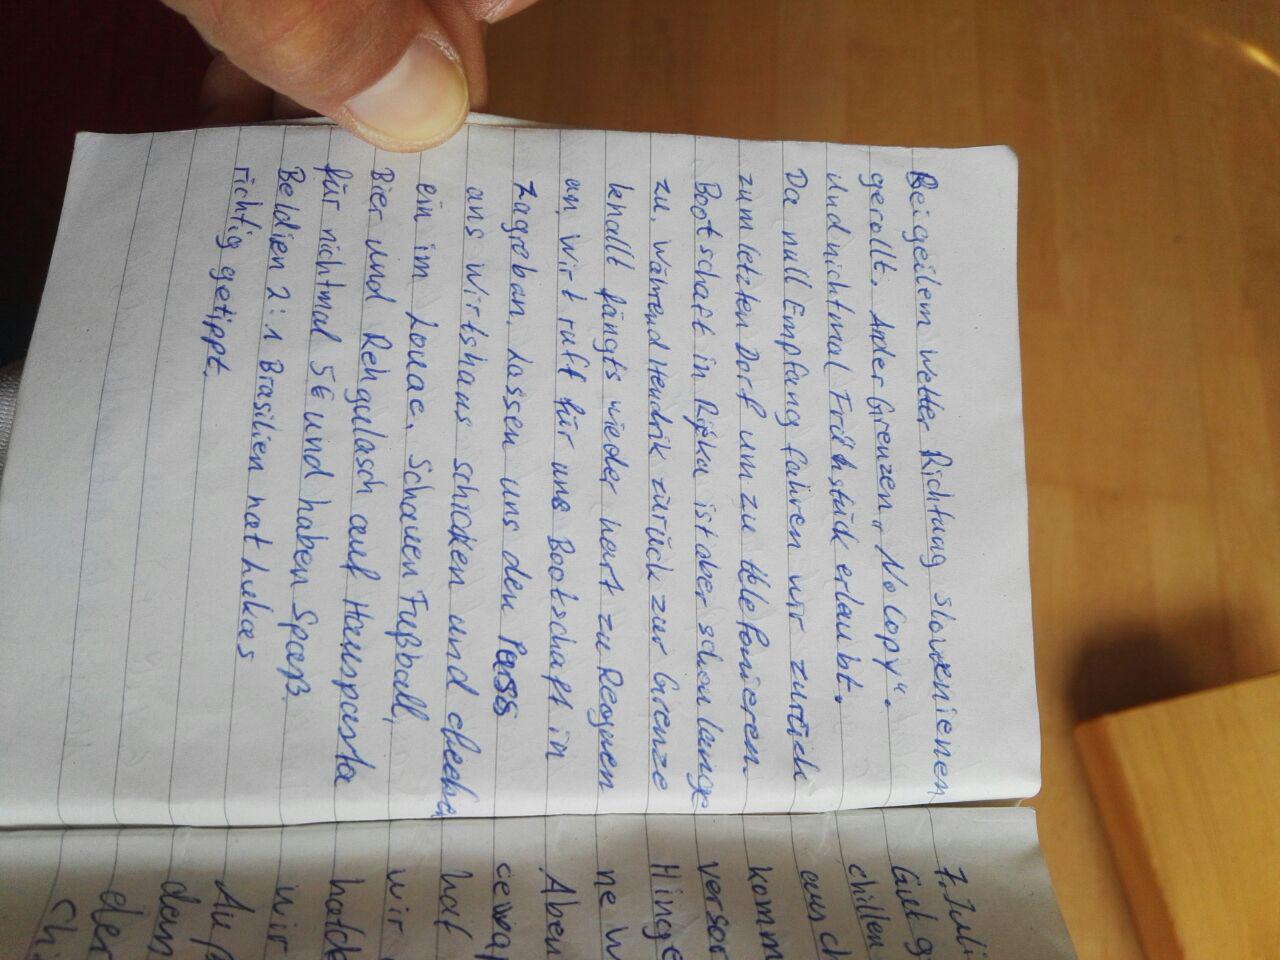 Bei geilem wetter Richtung Slowenienen
gerollt. An der Grenzen „No Copy“.
Und nichtmal Frühstück erlaubt.
Da null Empfang fahren wir zurück
zum letzten Dorf um zu telefonieren.
Bootschaft in Rijka ist aber schon lange
zu, während Hendrik zurück zur Grenze
knallt fängts wieder hart zu Regnen
an, Wirt ruft für uns Bootschaft in
Zagreb an. Lassen uns den Pass
ans Wirtshaus schicken und checken
ein im Louac. Schauen Fußball,
Bier und Rehgulasch auf Hauspasta
für nichtmal 5€ und haben Spaß.
Beldien 2:1 Brasilien hat
richtig getippt.
7. Juli
Gut g
chillen
aus ch
komm
versor
Hinge
ne w
Aben
hat
wir
wir
Auf
dem
der